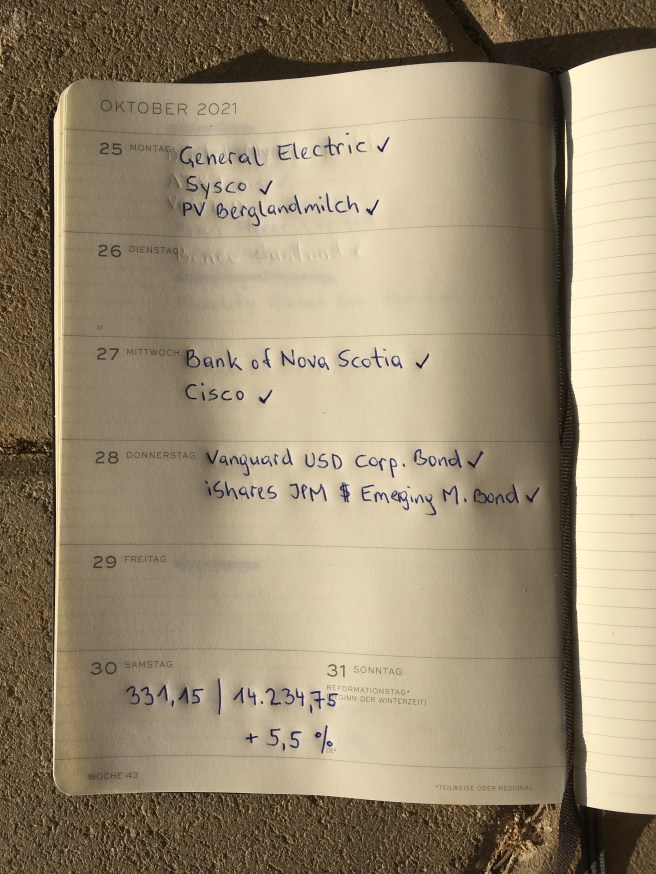 OKTOBER 2021
25 MONTAG General Electric ✓
Sysco ✓
PV Berglandmilch ✓
26 DIENSTAG
27 MITTWOCH Bank of Nova Scotia ✓
Cisco ✓
28 DONNERSTAG Vanguard USD Corp. Bond ✓
iShares JPM $ Emerging M. Bond ✓
29 FREITAG
30 SAMSTAG
31 SONNTAG
REFORMATIONSTAG*
DER WINTERZEIT)
331,15 | 14.234,75
+ 5,5 %
WOCHE 43
*TEILWEISE ODER REGIONAL